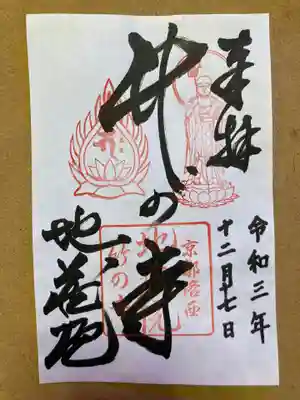 奉拝
令和三年
十二月十七日
竹の寺
地蔵院
京都洛西
竹の寺
地蔵院